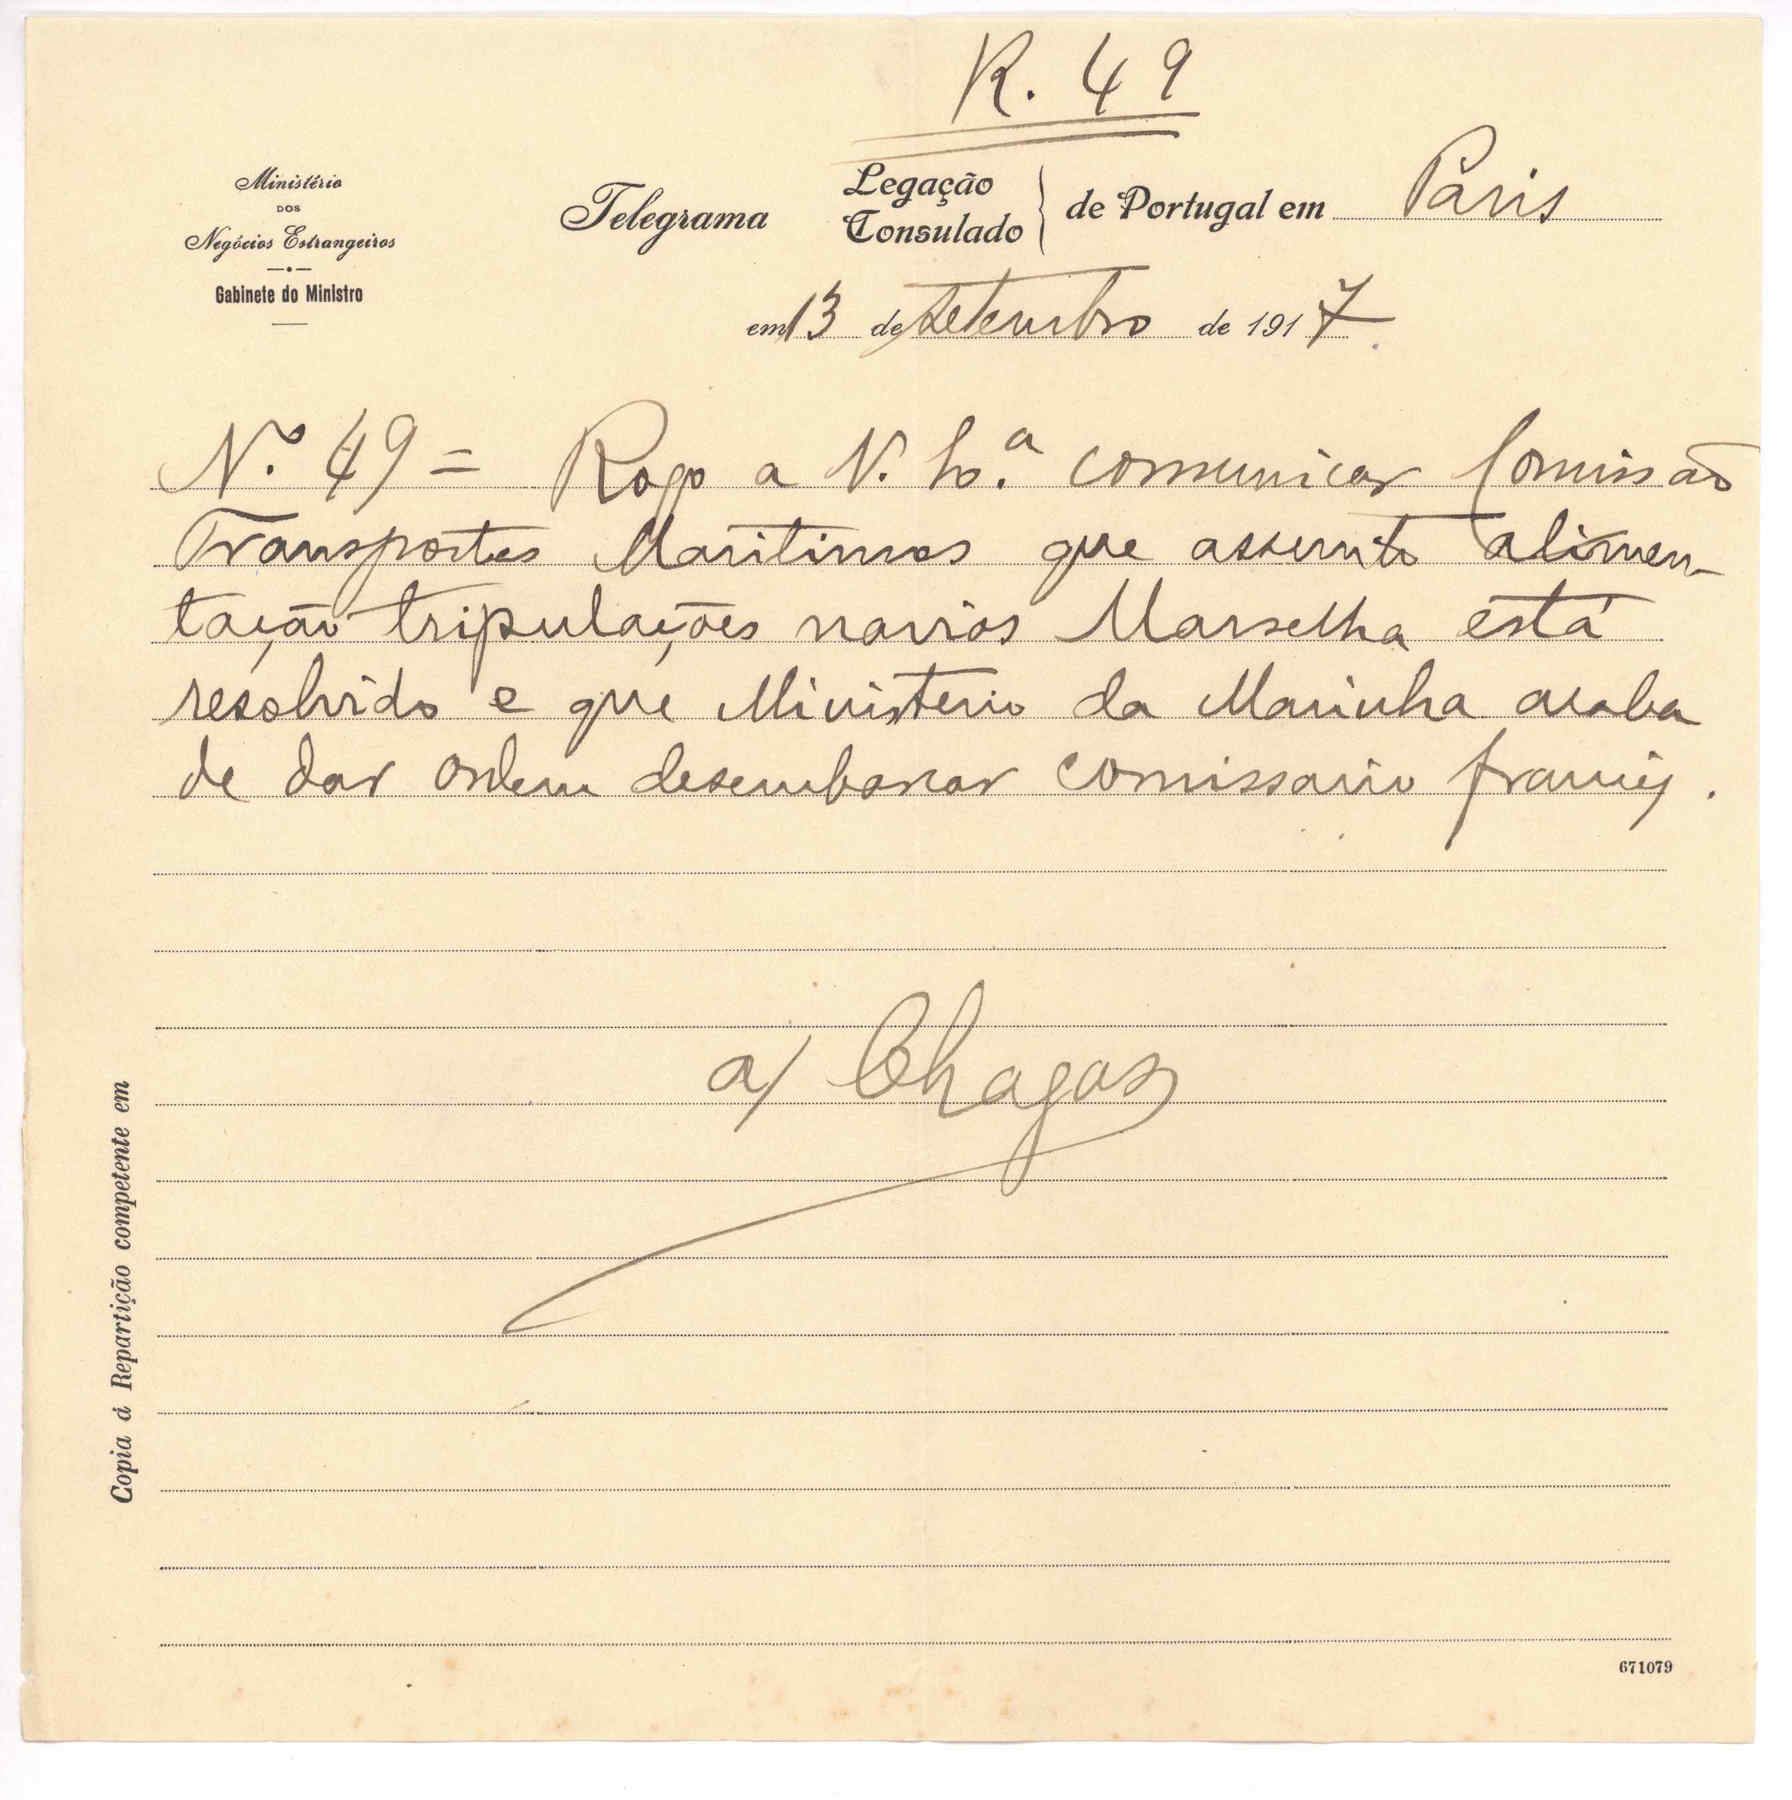 R. 49
Ministério
DOS
Negócios Estrangeiros
Gabinete do Ministro
Telegrama
Legação
Consulado
de Portugal em Paris
em 13 de Setembro de 1917.
N.º 49 = Rogo a V. Ex.ª comunicar Comissão
Transportes Maritimos que assunto alimen-
tação tripulações navios Marselha está
resolvido e que Ministerio da Marinha acaba
de dar ordem desembarcar comissario francês.
a/ Chagas
Copia á Repartição competente em
671079